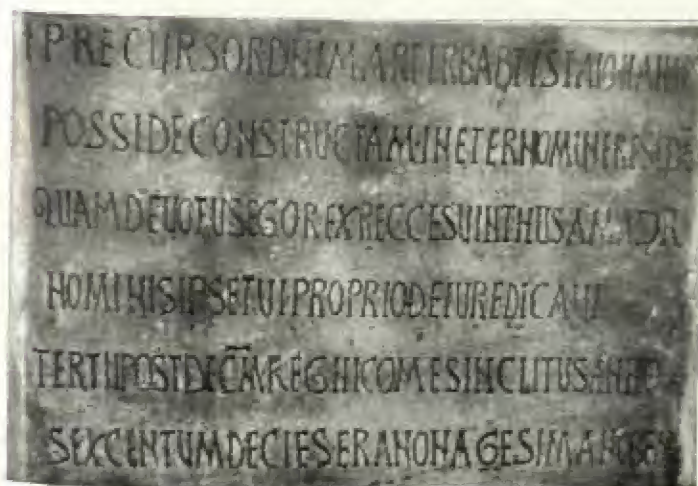 + PRECURSOR DNI MARTIR BABTISTA IOHANNES
POSSIDE CONSTRUCTAM IN ETERNO MUNERE SEDE
QUAM DEUOTUS EGO REX RECCESUINTHUS AMATOR
NOMINIS IPSE TUI PROPRIO DE IURE DICAUI
TERTII POST DECM REGNI COMES INCLITUS ANNO
SEXCENTUM DECIES ERA NONAGESIMA NOBEM